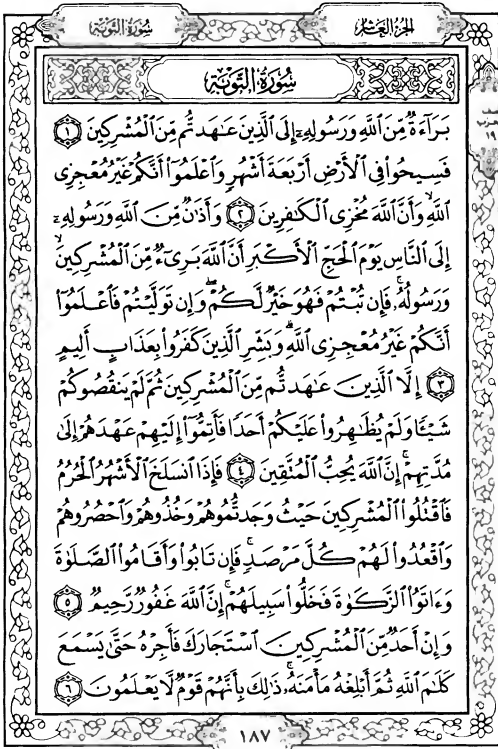 سُورَةُ التَّوْبَةِ
الجُزْءُ العَاشِرُ
سُورَةُ التَّوْبَةِ
بَرَآءَةٌ مِّنَ ٱللَّهِ وَرَسُولِهِۦٓ إِلَى ٱلَّذِينَ عَٰهَدتُّم مِّنَ ٱلْمُشْرِكِينَ ١
فَسِيحُوا۟ فِى ٱلْأَرْضِ أَرْبَعَةَ أَشْهُرٍ وَٱعْلَمُوٓا۟ أَنَّكُمْ غَيْرُ مُعْجِزِى
ٱللَّهِ ۙ وَأَنَّ ٱللَّهَ مُخْزِى ٱلْكَٰفِرِينَ ٢ وَأَذَٰنٌ مِّنَ ٱللَّهِ وَرَسُولِهِۦٓ
إِلَى ٱلنَّاسِ يَوْمَ ٱلْحَجِّ ٱلْأَكْبَرِ أَنَّ ٱللَّهَ بَرِىٓءٌ مِّنَ ٱلْمُشْرِكِينَ ۙ
وَرَسُولُهُۥ ۚ فَإِن تُبْتُمْ فَهُوَ خَيْرٌ لَّكُمْ ۖ وَإِن تَوَلَّيْتُمْ فَٱعْلَمُوٓا۟
أَنَّكُمْ غَيْرُ مُعْجِزِى ٱللَّهِ ۗ وَبَشِّرِ ٱلَّذِينَ كَفَرُوا۟ بِعَذَابٍ أَلِيمٍ
٣ إِلَّا ٱلَّذِينَ عَٰهَدتُّم مِّنَ ٱلْمُشْرِكِينَ ثُمَّ لَمْ يَنقُصُوكُمْ
شَيْـًٔا وَلَمْ يُظَٰهِرُوا۟ عَلَيْكُمْ أَحَدًا فَأَتِمُّوٓا۟ إِلَيْهِمْ عَهْدَهُمْ إِلَىٰ
مُدَّتِهِمْ ۚ إِنَّ ٱللَّهَ يُحِبُّ ٱلْمُتَّقِينَ ٤ فَإِذَا ٱنسَلَخَ ٱلْأَشْهُرُ ٱلْحُرُمُ
فَٱقْتُلُوا۟ ٱلْمُشْرِكِينَ حَيْثُ وَجَدتُّمُوهُمْ وَخُذُوهُمْ وَٱحْصُرُوهُمْ
وَٱقْعُدُوا۟ لَهُمْ كُلَّ مَرْصَدٍ ۚ فَإِن تَابُوا۟ وَأَقَامُوا۟ ٱلصَّلَوٰةَ
وَءَاتَوُا۟ ٱلزَّكَوٰةَ فَخَلُّوا۟ سَبِيلَهُمْ ۚ إِنَّ ٱللَّهَ غَفُورٌ رَّحِيمٌ ٥
وَإِنْ أَحَدٌ مِّنَ ٱلْمُشْرِكِينَ ٱسْتَجَارَكَ فَأَجِرْهُ حَتَّىٰ يَسْمَعَ
كَلَٰمَ ٱللَّهِ ثُمَّ أَبْلِغْهُ مَأْمَنَهُۥ ۚ ذَٰلِكَ بِأَنَّهُمْ قَوْمٌ لَّا يَعْلَمُونَ ٦
١٨٧